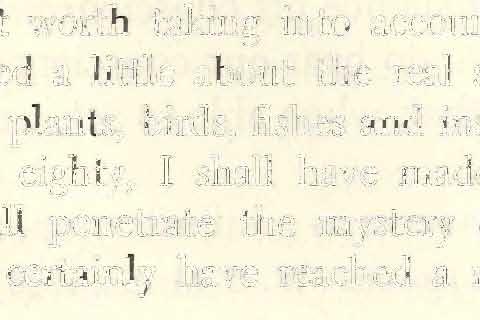 t worth taking into accoun
ed a little about the real s
plants, birds, fishes and ins
eighty, I shall have made
ll penetrate the mystery
certainly have reached a